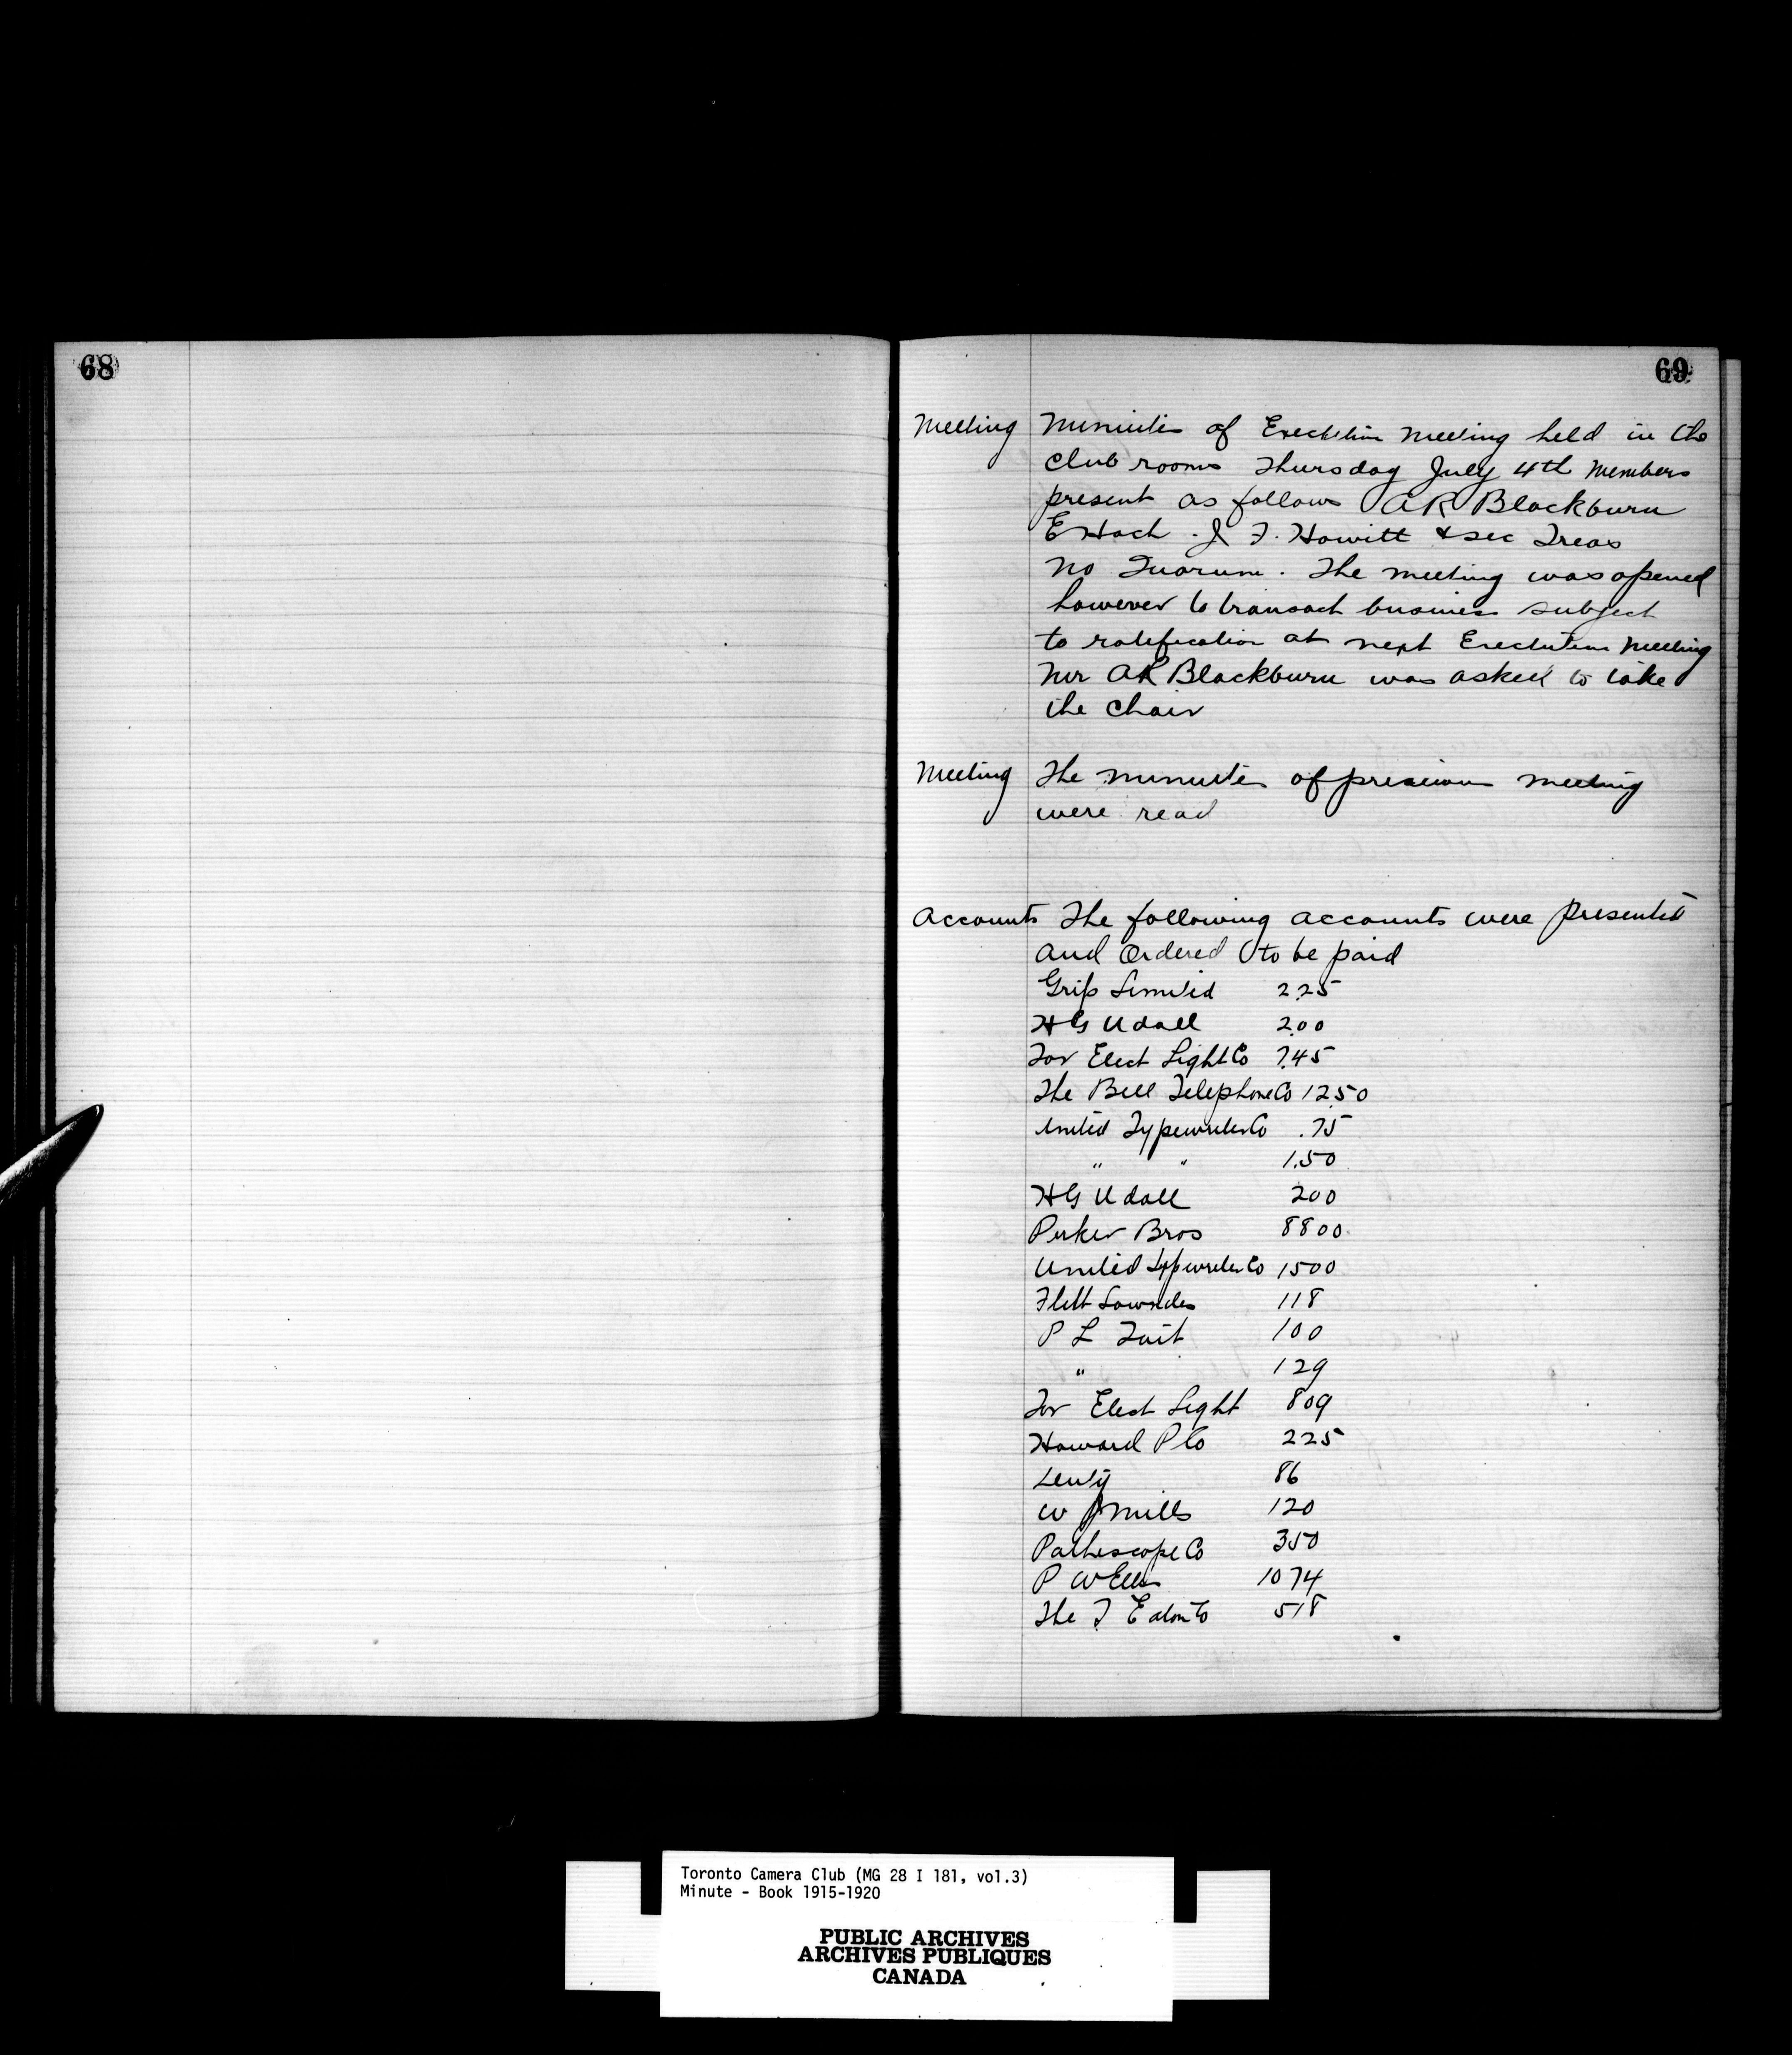 68
69
Meeting Minuites of Executive Meeting held in the
club rooms Thursday July 4th Members
present as follows A R Blackburn
E Hoch . J F. Howitt & sec Treas
No Quorum. The meeting was opened
however to transact business subject
to ratification at next Executive Meeting
Mr A R Blackburn was asked to take
the Chair
Meeting The minuites of previous meeting
were read
Accounts The following accounts were presented
and Ordered to be paid
Grip Limited 2.25
H G Udall 2.00
Tor Elect Light Co 7.45
The Bell Telephone Co 12.50
United Typewriter Co .75
" " 1.50
H G Udall 200
Parker Bros 8800
United Typewriter Co 1500
Flett Lowndes 118
P L Tait 100
" 129
Tor Elect Light 809
Howard P Co 225
86
W J Mills 120
Pathescope Co 350
P W Ellis 1074
The T Eaton Co 518
Toronto Camera Club (MG 28 I 181, vol.3)
Minute - Book 1915-1920
PUBLIC ARCHIVES
ARCHIVES PUBLIQUES
CANADA